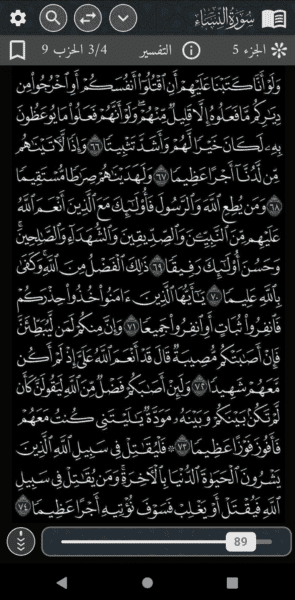 سُورَةُ النِّسَاء
الجزء ٥ التفسير 3/4 الحزب 9
وَلَوْ أَنَّا كَتَبْنَا عَلَيْهِمْ أَنِ اقْتُلُوا أَنفُسَكُمْ أَوِ اخْرُجُوا مِن
دِيَارِكُم مَّا فَعَلُوهُ إِلَّا قَلِيلٌ مِّنْهُمْ وَلَوْ أَنَّهُمْ فَعَلُوا مَا يُوعَظُونَ
بِهِ لَكَانَ خَيْرًا لَّهُمْ وَأَشَدَّ تَثْبِيتًا ٦٦ وَإِذًا لَّآتَيْنَاهُم
مِّن لَّدُنَّا أَجْرًا عَظِيمًا ٦٧ وَلَهَدَيْنَاهُمْ صِرَاطًا مُّسْتَقِيمًا
٦٨ وَمَن يُطِعِ اللَّهَ وَالرَّسُولَ فَأُولَٰئِكَ مَعَ الَّذِينَ أَنْعَمَ اللَّهُ
عَلَيْهِم مِّنَ النَّبِيِّينَ وَالصِّدِّيقِينَ وَالشُّهَدَاءِ وَالصَّالِحِينَ
وَحَسُنَ أُولَٰئِكَ رَفِيقًا ٦٩ ذَٰلِكَ الْفَضْلُ مِنَ اللَّهِ وَكَفَىٰ
بِاللَّهِ عَلِيمًا ٧٠ يَا أَيُّهَا الَّذِينَ آمَنُوا خُذُوا حِذْرَكُمْ
فَانفِرُوا ثُبَاتٍ أَوِ انفِرُوا جَمِيعًا ٧١ وَإِنَّ مِنكُمْ لَمَن لَّيُبَطِّئَنَّ
فَإِنْ أَصَابَتْكُم مُّصِيبَةٌ قَالَ قَدْ أَنْعَمَ اللَّهُ عَلَيَّ إِذْ لَمْ أَكُن
مَّعَهُمْ شَهِيدًا ٧٢ وَلَئِنْ أَصَابَكُمْ فَضْلٌ مِّنَ اللَّهِ لَيَقُولَنَّ كَأَن
لَّمْ تَكُن بَيْنَكُمْ وَبَيْنَهُ مَوَدَّةٌ يَا لَيْتَنِي كُنتُ مَعَهُمْ
فَأَفُوزَ فَوْزًا عَظِيمًا ٧٣ ۞ فَلْيُقَاتِلْ فِي سَبِيلِ اللَّهِ الَّذِينَ
يَشْرُونَ الْحَيَاةَ الدُّنْيَا بِالْآخِرَةِ وَمَن يُقَاتِلْ فِي سَبِيلِ
اللَّهِ فَيُقْتَلْ أَوْ يَغْلِبْ فَسَوْفَ نُؤْتِيهِ أَجْرًا عَظِيمًا ٧٤
89